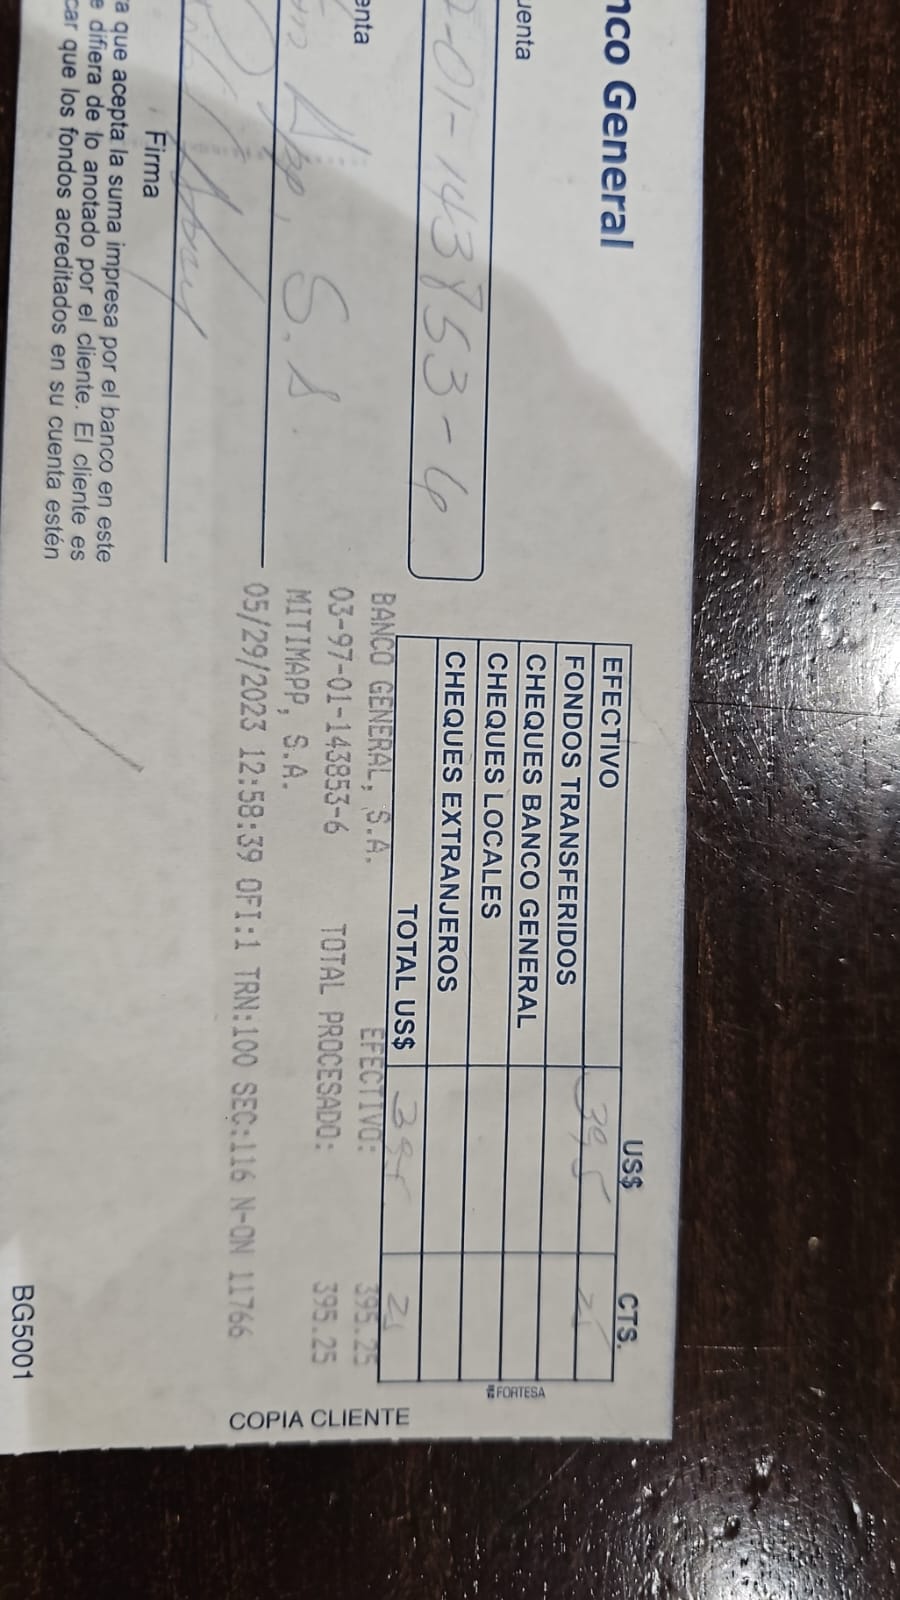 nco General
uenta
-01-143853-6
enta
App, S.A.
Firma
ra que acepta la suma impresa por el banco en este
e difiera de lo anotado por el cliente. El cliente es
car que los fondos acreditados en su cuenta estén
US$ CTS.
EFECTIVO 395 25
FONDOS TRANSFERIDOS
CHEQUES BANCO GENERAL
CHEQUES LOCALES
CHEQUES EXTRANJEROS
TOTAL US$ 395 25
BANCO GENERAL, S.A. EFECTIVO: 395.25
03-97-01-143853-6 TOTAL PROCESADO: 395.25
MITIMAPP, S.A.
05/29/2023 12:58:39 OFI:1 TRN:100 SEC:116 N-ON 11766
FORTESA
COPIA CLIENTE
BG5001